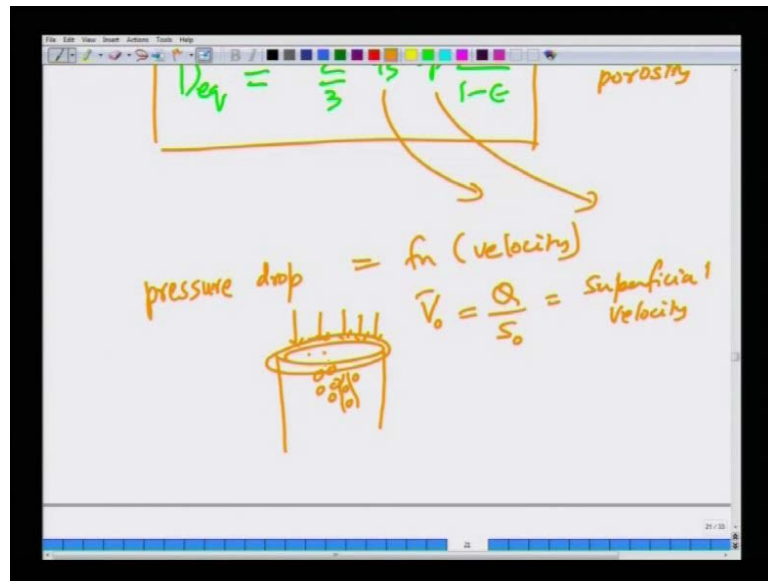 File Edit View Insert Actions Tools Help
D_eq = 2/3 ε/1-ε
porosity
pressure drop = fn (velocity)
V̄₀ = Q/S₀ = superficial velocity
21 / 33
21